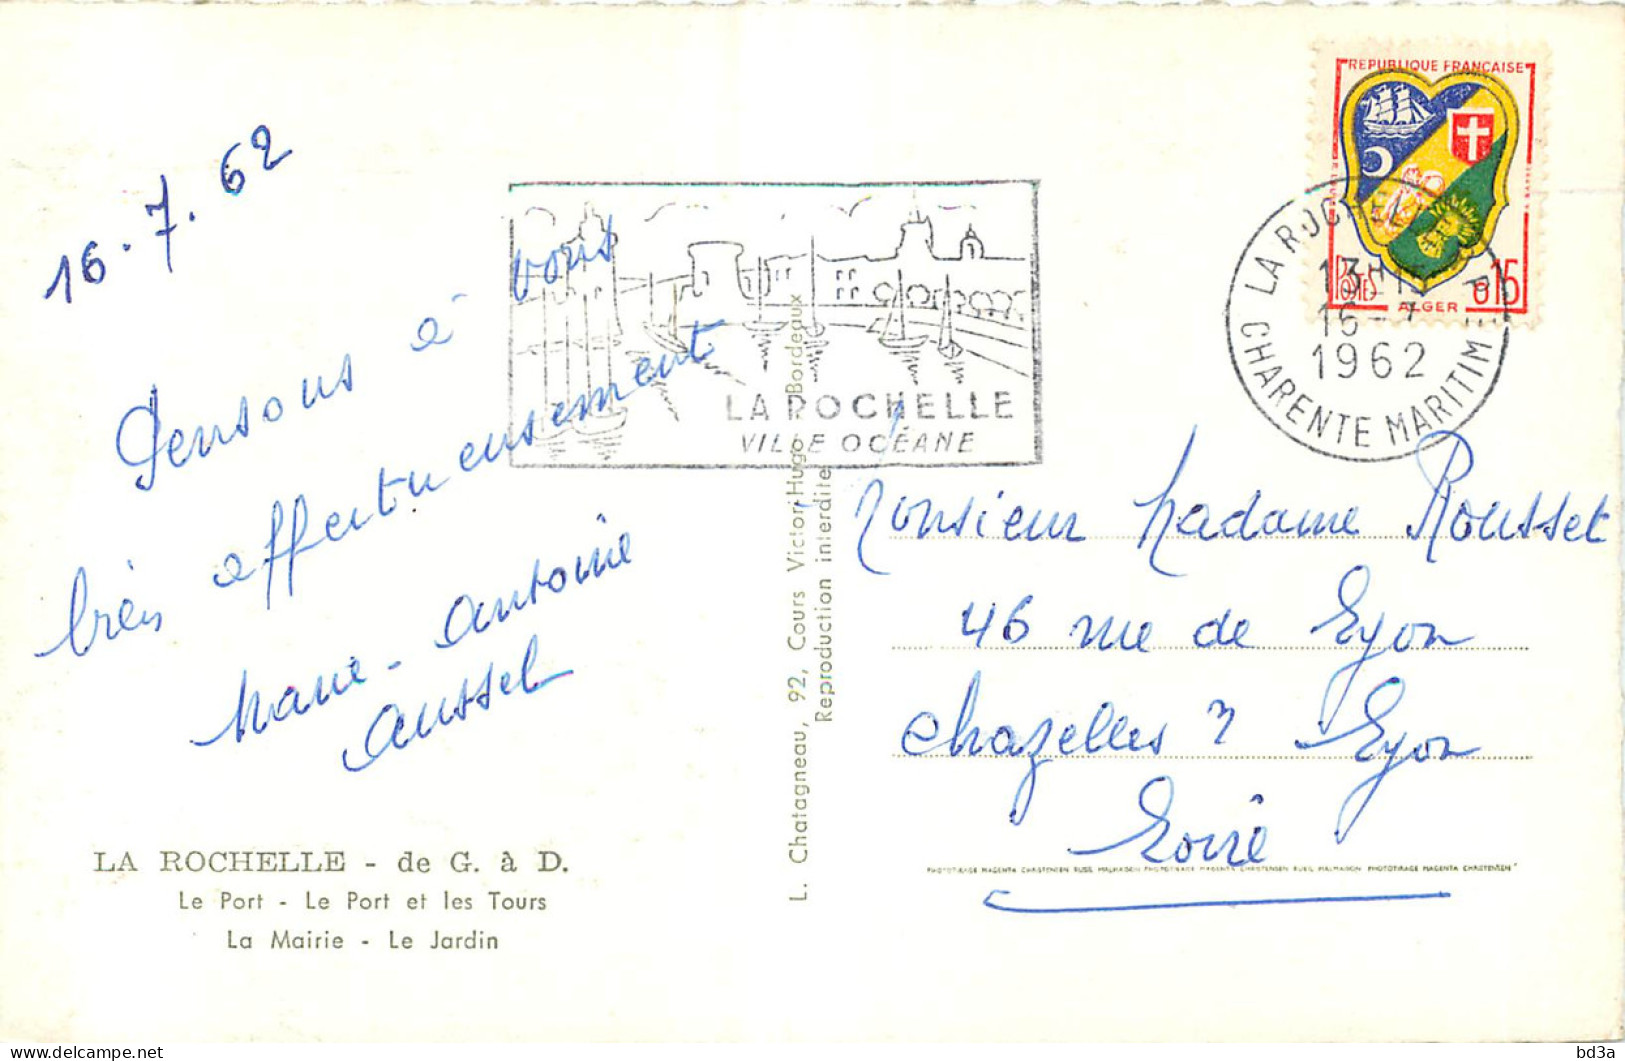 16.7.62
Pensons à vous
très affectueusement
Marie-Antoine
Aussel
LA ROCHELLE - de G. à D.
Le Port - Le Port et les Tours
La Mairie - Le Jardin
LA ROCHELLE
VILLE OCÉANE
L. Chatagneau, 92, Cours Victor-Hugo Bordeaux
Reproduction interdite
REPUBLIQUE FRANÇAISE
POSTES
0,15
ALGER
LA ROCHELLE R.P.
13H15
16-7
1962
CHARENTE MARITIME
Monsieur Madame Rousset
46 rue de Lyon
Chazelles s Lyon
Loire
PHOTOTIRAGE MAGENTA CHRISTENSEN RUEIL MALMAISON PHOTOTIRAGE MAGENTA CHRISTENSEN RUEIL MALMAISON PHOTOTIRAGE MAGENTA CHRISTENSEN
bd3a